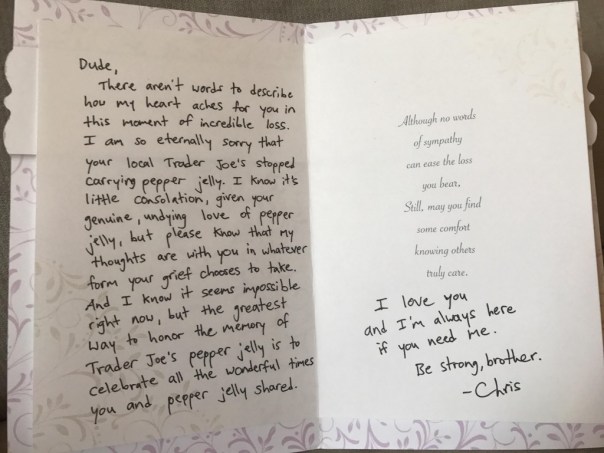 Dude,
There aren't words to describe
how my heart aches for you in
this moment of incredible loss.
I am so eternally sorry that
your local Trader Joe's stopped
carrying pepper jelly. I know it's
little consolation, given your
genuine, undying love of pepper
jelly, but please know that my
thoughts are with you in whatever
form your grief chooses to take.
And I know it seems impossible
right now, but the greatest
way to honor the memory of
Trader Joe's pepper jelly is to
celebrate all the wonderful times
you and pepper jelly shared.
Although no words
of sympathy
can ease the loss
you bear,
Still, may you find
some comfort
knowing others
truly care.
I love you
and I'm always here
if you need me.
Be strong, brother.
-Chris